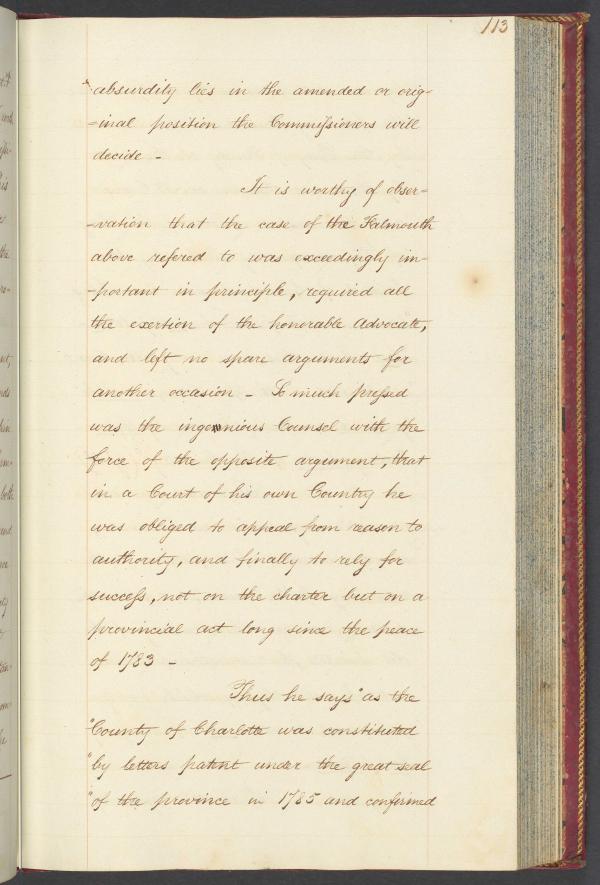 113
absurdity lies in the amended or orig-
-inal position the Commissioners will
decide -
It is worthy of obser-
-vation that the case of the Falmouth
above refered to was exceedingly im-
-portant in principle, required all
the exertion of the honorable Advocate,
and left no spare arguments for
another occasion - So much pressed
was the ingenious Counsel with the
force of the opposite argument, that
in a Court of his own Country he
was obliged to appeal from reason to
authority, and finally to rely for
success, not on the charter but on a
provincial act long since the peace
of 1783 -
Thus he says "as the
"County of Charlotte was constituted
"by letters patent under the great seal
"of the province in 1785 and confirmed